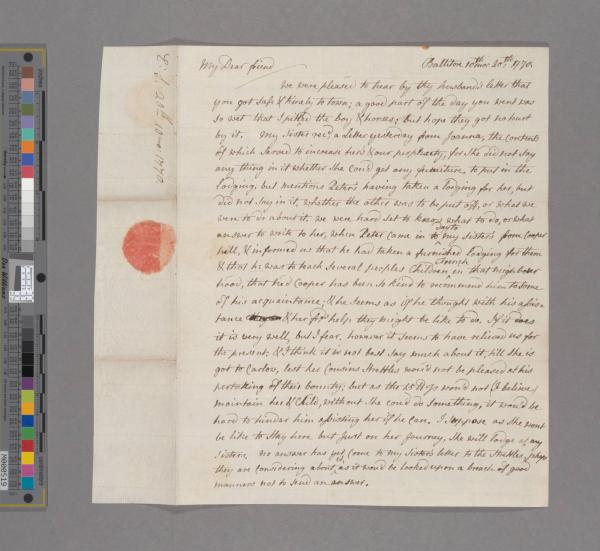 My Dear friend Ballitore 10th mo: 20th. 1770.
We were pleased to hear by thy husband's letter that
you got safe & finely to town; a good part of the day you went was
so wet that I pitied the boy & horses; but hope they got no hurt
by it. My Sister rec'd. a Letter yesterday from Joanna, the contents
of which served to increase hers & our perplexity, for she did not say
any thing in it whether she could get any furniture to put in the
lodging, but mentions Peter's having taken a lodging for her, but
did not say in it, whether the other was to be put off, or what we
were to do about it; we were hard set to know what to do, or what
answer to write to her, when Peter came in to my sister's from Cooper
hill, & informed us that he had taken a furnished Lodging for them
& that he was to teach several peoples Children in that neighbour
hood, that Ned Cooper has been so kind to recommend him to some
of his acquaintance; & he seems as if he thought with his assis=
tance & her help they might be like to do. If it does
it is very well, but I fear, however it seems to have relieved us for
the present; & I think it is not best say much about it, till she is
got to Carlow, lest her Cousins Strettles wou'd not be pleased at his
pertaking of their bounty; but as the wou'd not (I believe)
maintain her & Child, without she cou'd do something, it wou'd be
hard to hinder him assisting her if he can. I suppose as she wont
be like to stay here but just on her Journey, she will lodge at my
Sisters. no answer has yet come to my Sister's letter to the Strettles, perhaps
they are considering about it, as it wou'd be looked upon a breach of good
manners not to send an answer.
inches
centimetres
M000519